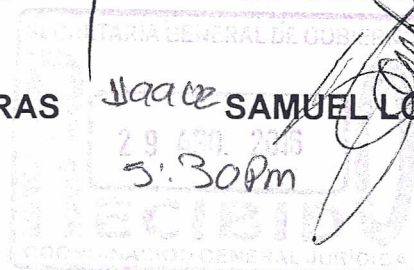 SECRETARÍA GENERAL DE GOBIERNO
RAS SAMUEL LO
29 AGO. 2016
5:30pm
RECIBIDO
COORDINACIÓN GENERAL JURÍDICA